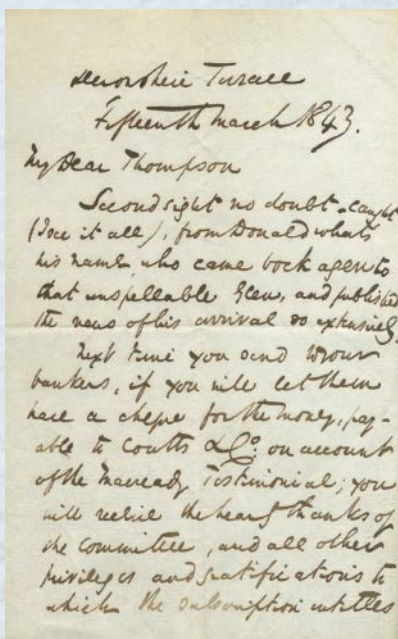 Devonshire Terrace
Fifteenth March 1843.
My Dear Thompson
Second sight no doubt - caught
(I see it all), from Donald whats
his name, who came back agen to
that unspellable Glen, and published
the news of his arrival so extensively.
Next time you send to our
bankers, if you will let them
have a cheque for the money, pay-
able to Coutts & Co: on account
of the Macready Testimonial; you
will receive the hearty thanks of
the committee, and all other
privileges and gratifications to
which the subscription entitles